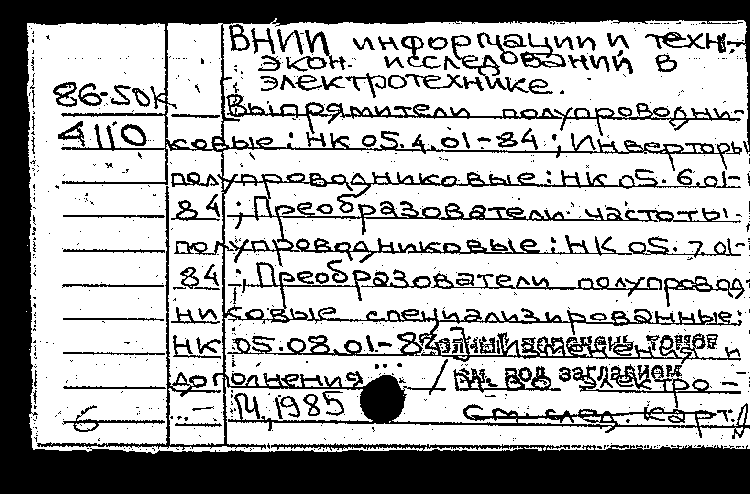 ВНИИ информации и техн.-
экон. исследований в
электротехнике.
86-50к
Выпрямители полупроводни-
4110
ковые: НК 05.4.01-84; Инверторы
полупроводниковые: НК 05.6.01-
84; Преобразователи частоты
полупроводниковые: НК 05.7.01-
84; Преобразователи полупровод
никовые специализированные:
НК 05.08.01-8 Полный перечень томов и
дополнения ... / см. под заглавием электро-
6 ..- М, 1985 См. след. карт.